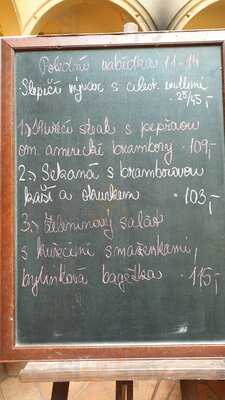 Polední nabídka 11-14
Slepičí vývar s celest. nudlemi
25/45,-
1.) Kuřecí steak s pepřovou
om. americké brambory 109,-
2.) Sekaná s bramborovou
kaší a okurkem 103,-
3.) Zeleninový salát
s kuřecími smaženkami,
bylinková bagetka 115,-